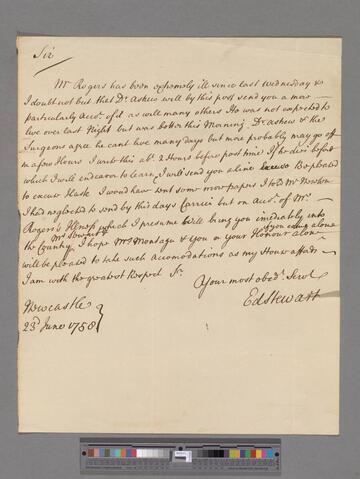 Sir
Mr Rogers has been extremely ill since last Wednesday &
I doubt not but that Dr Askew will by this post send you a more
particularly Acct. of it as will many others He was not expected to
live over last Night but was better this Morning. Dr Askew & the
Surgeons agree he cant live many days but more probably may go off
in a few Hours I write this abt. 2 Hours before post time If he dies before
which I will endeavor to learn, I will send you a line Be pleased
to excuse Hast I would have sent some more papers I told Mr Newton
I had neglected to send by this days Carrier but on Acct. of Mr.
Rogers's Illness which I presume will bring you imediately into
the Country, I hope Mrs Montagu & you or your Honour alone
if you come alone
will be pleased to take such Accomodations as my House affords
I am with the greatest Respect Sr.
Your most obedt. Servt
Ed Stewart
Newcastle
23d June 1758